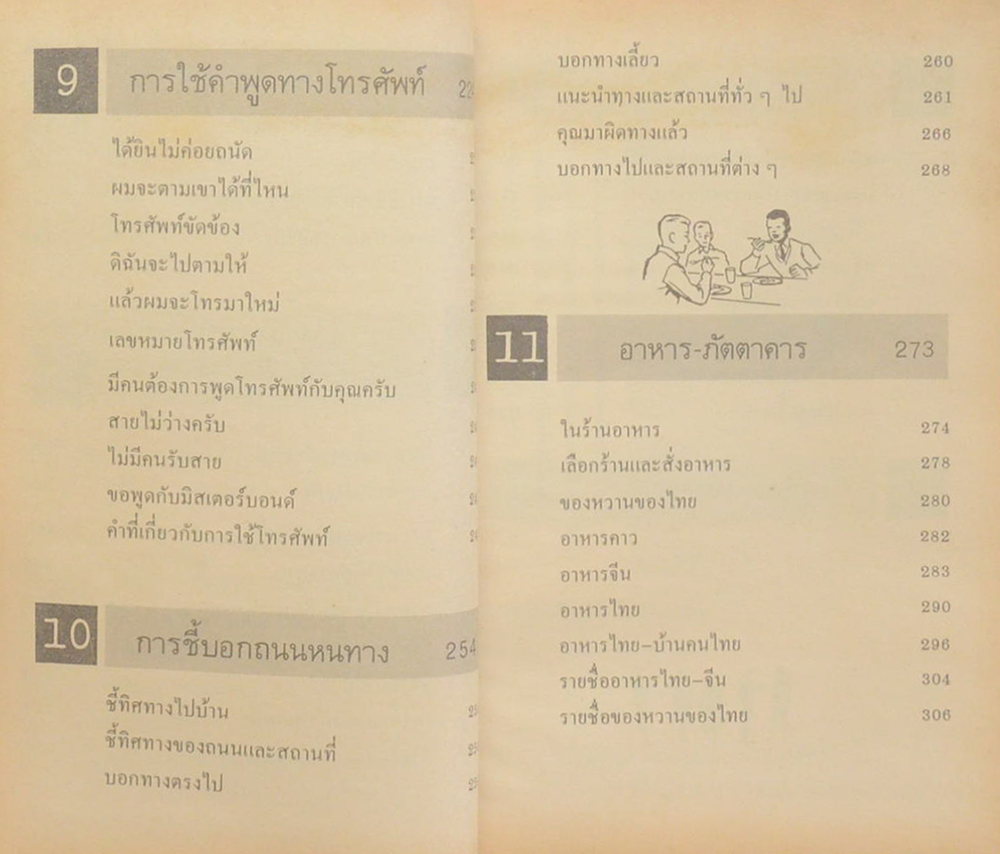 9 การใช้คำพูดทางโทรศัพท์
ได้ยินไม่ค่อยถนัด
ผมจะตามเขาได้ที่ไหน
โทรศัพท์ขัดข้อง
ดิฉันจะไปตามให้
แล้วผมจะโทรมาใหม่
เลขหมายโทรศัพท์
มีคนต้องการพูดโทรศัพท์กับคุณครับ
สายไม่ว่างครับ
ไม่มีคนรับสาย
ขอพูดกับมิสเตอร์บอนด์
คำที่เกี่ยวกับการใช้โทรศัพท์
10 การชี้บอกถนนหนทาง 254
ชี้ทิศทางไปบ้าน
ชี้ทิศทางของถนนและสถานที่
บอกทางตรงไป
บอกทางเลี้ยว 260
แนะนำทางและสถานที่ทั่ว ๆ ไป 261
คุณมาผิดทางแล้ว 266
บอกทางไปและสถานที่ต่าง ๆ 268
11 อาหาร-ภัตตาคาร 273
ในร้านอาหาร 274
เลือกร้านและสั่งอาหาร 278
ของหวานของไทย 280
อาหารคาว 282
อาหารจีน 283
อาหารไทย 290
อาหารไทย–บ้านคนไทย 296
รายชื่ออาหารไทย–จีน 304
รายชื่อของหวานของไทย 306